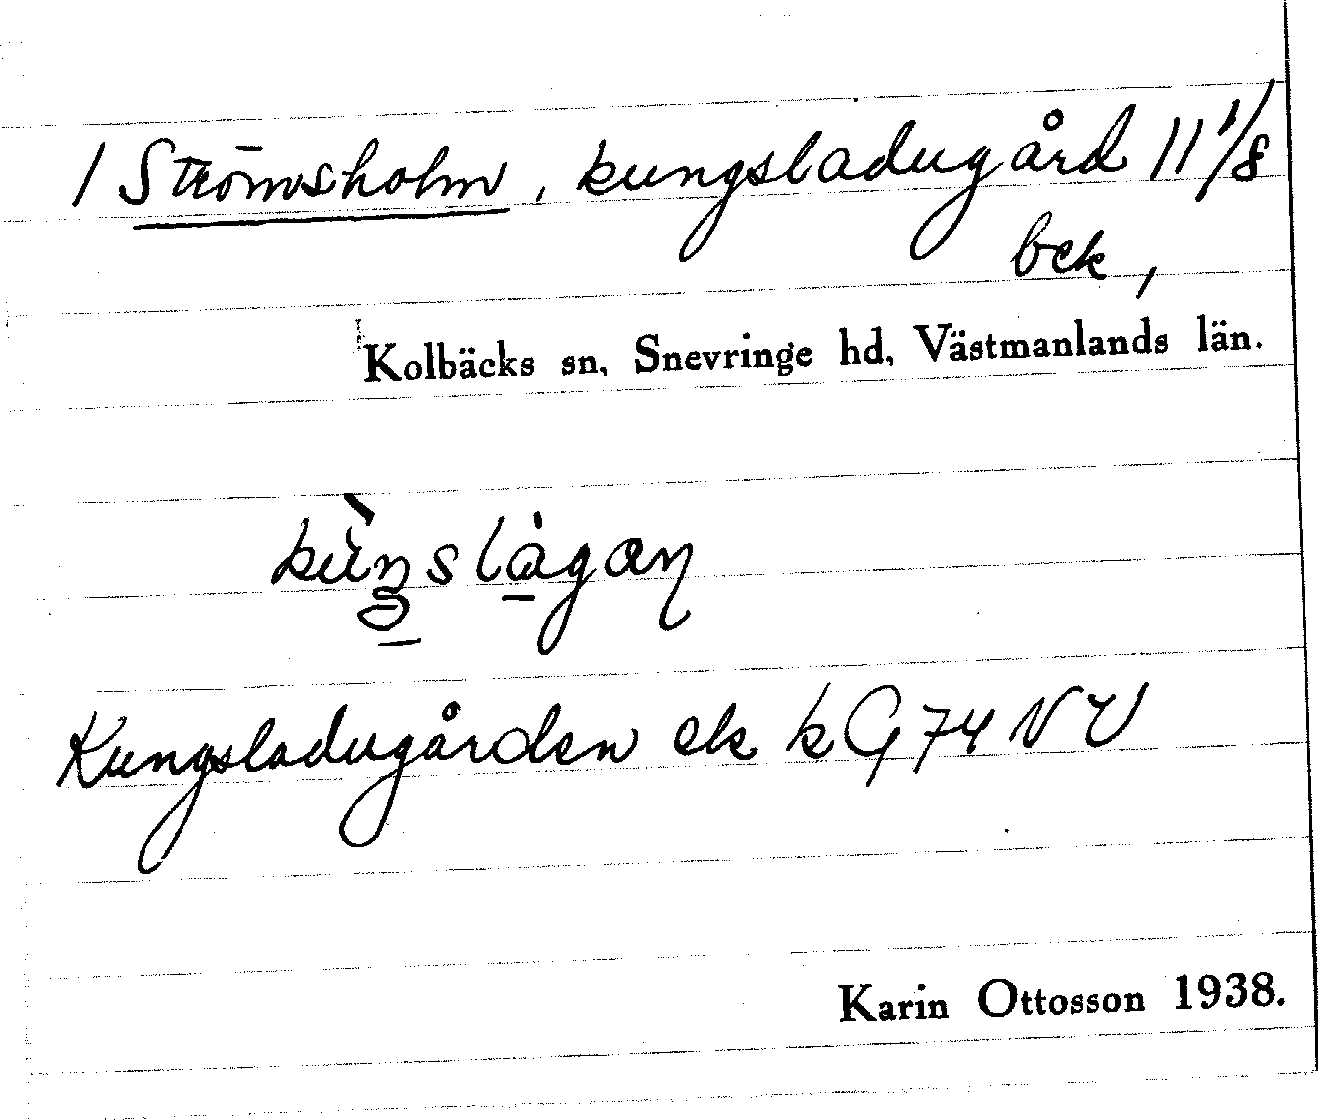 1 Strömsholm, kungsladugård 11 1/8
bek,
Kolbäcks sn, Snevringe hd, Västmanlands län.
Kungsladugården ek k G 74 NV
Karin Ottosson 1938.